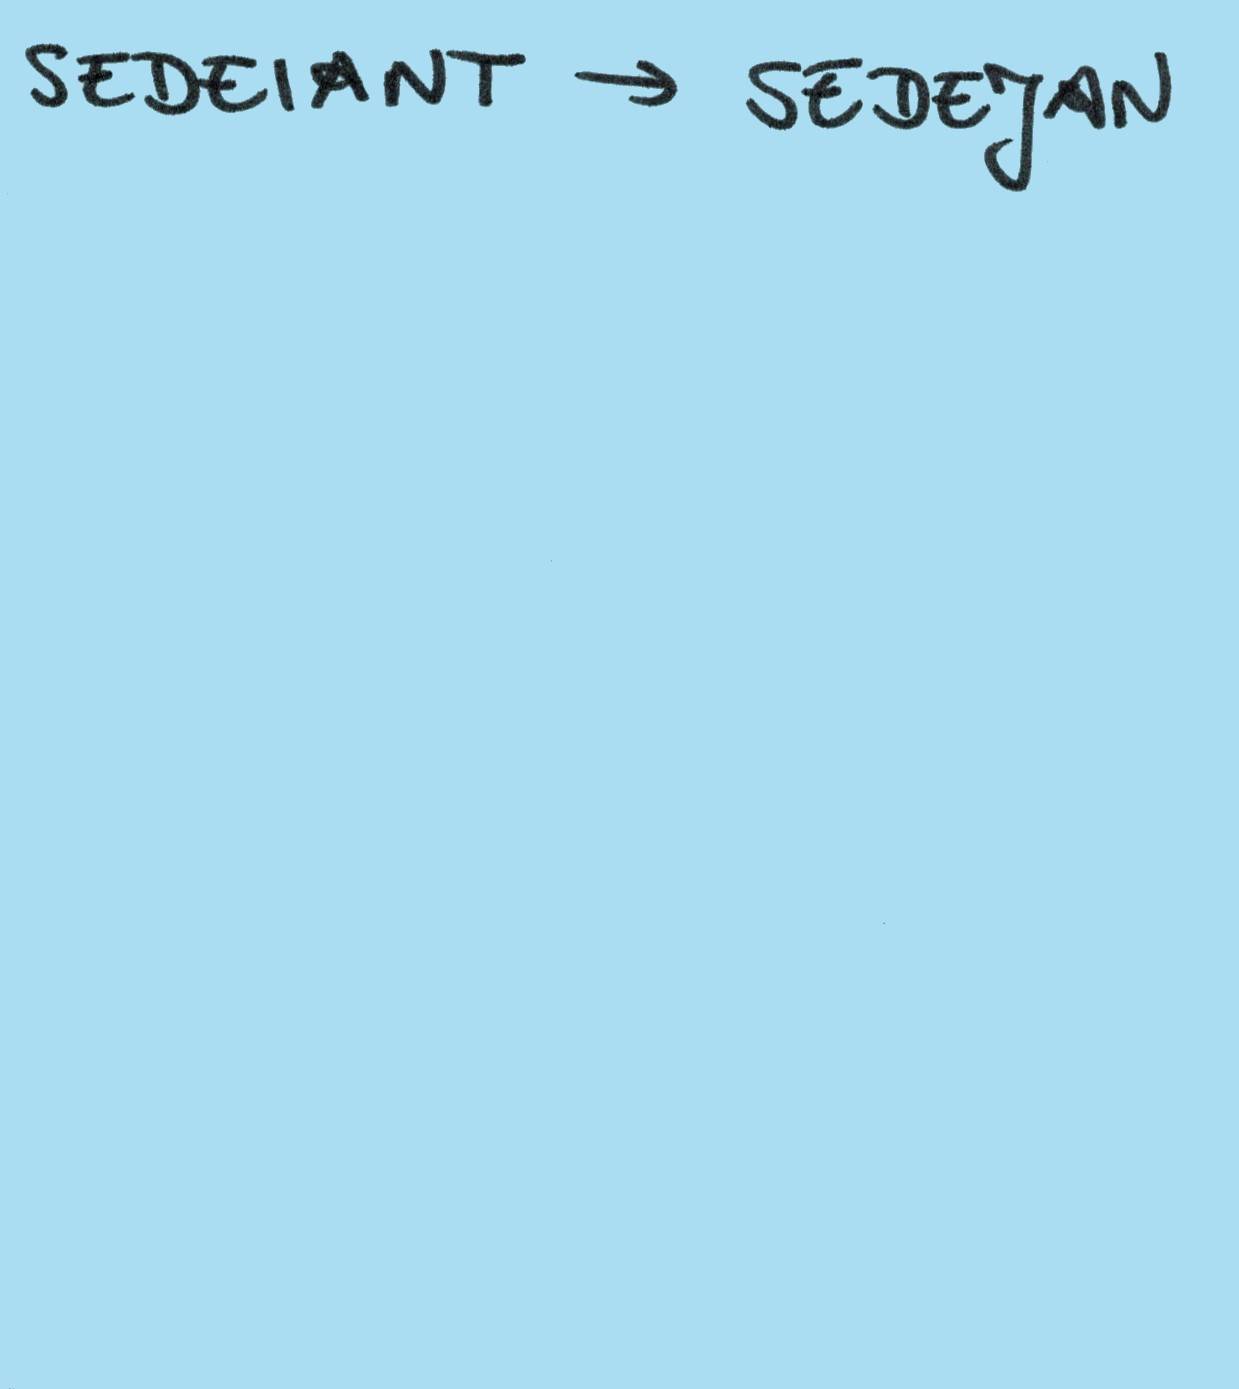 SEDEIANT → SEDEJAN